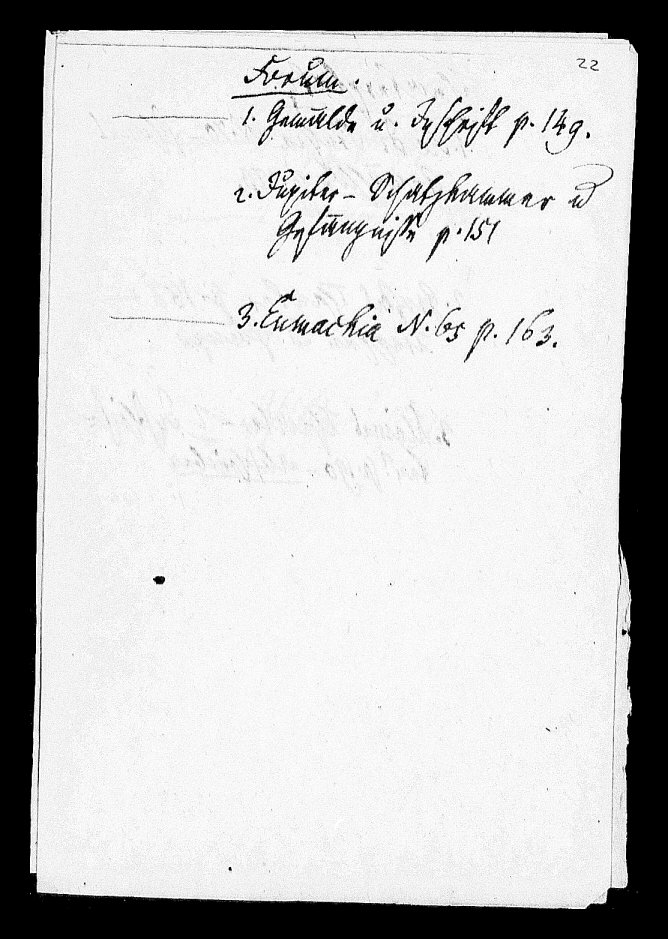 22
Forum.
1. Gemälde u. Inschrift p. 149.
2. Jupiter - Schatzkammer u
Gefängnisse p. 151
3. Eumachia N. 65 p. 163.